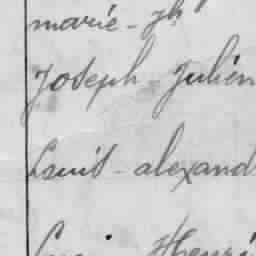 marie - jh
Joseph - Julien
Louis - alexand
Henri